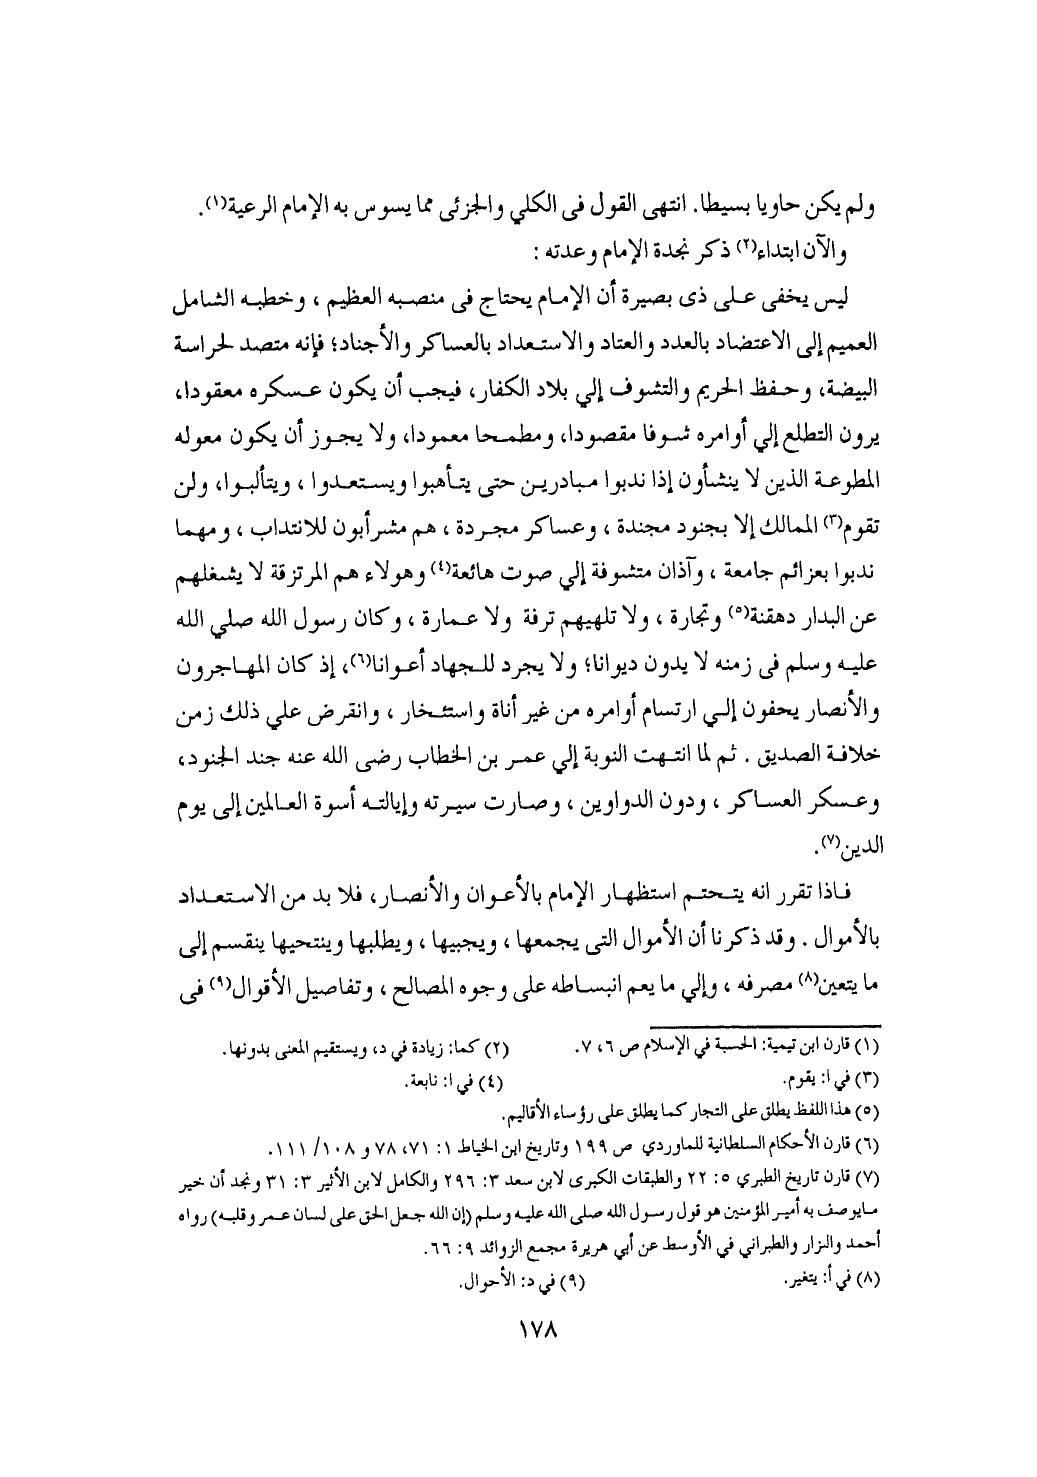 ولم يكن حاويا بسيطا. انتهى القول فى الكلي والجزئى مما يسوس به الإمام الرعية(١).
والآن ابتداء(٢) ذكر نجدة الإمام وعدته :
ليس يخفى على ذى بصيرة أن الإمام يحتاج فى منصبه العظيم ، وخطبه الشامل
العميم إلى الاعتضاد بالعدد والعتاد والاستعداد بالعساكر والأجناد؛ فإنه متصد لحراسة
البيضة، وحفظ الحريم والتشوف إلي بلاد الكفار، فيجب أن يكون عسكره معقودا،
يرون التطلع إلي أوامره شوفا مقصودا، ومطمحا معمودا، ولا يجوز أن يكون معوله
المطوعة الذين لا ينشأون إذا ندبوا مبادرين حتى يتأهبوا ويستعدوا ، ويتألبوا، ولن
تقوم(٣) الممالك إلا بجنود مجندة ، وعساكر مجردة ، هم مشرأبون للانتداب ، ومهما
ندبوا بعزائم جامعة ، وآذان متشوفة إلي صوت هائعة(٤) وهولاء هم المرتزقة لا يشغلهم
عن البدار دهقنة(٥) وتجارة ، ولا تلهيهم ترفة ولا عمارة ، وكان رسول الله صلي الله
عليه وسلم فى زمنه لا يدون ديوانا؛ ولا يجرد للجهاد أعوانا(٦)، إذ كان المهاجرون
والأنصار يحفون إلي ارتسام أوامره من غير أناة واستئخار ، وانقرض علي ذلك زمن
خلافة الصديق . ثم لما انتهت النوبة إلي عمر بن الخطاب رضى الله عنه جند الجنود،
وعسكر العساكر ، ودون الدواوين ، وصارت سيرته وإيالته أسوة العالمين إلى يوم
الدين(٧).
فاذا تقرر انه يتحتم استظهار الإمام بالأعوان والأنصار، فلا بد من الاستعداد
بالأموال . وقد ذكرنا أن الأموال التى يجمعها ، ويجبيها ، ويطلبها وينتحيها ينقسم إلى
ما يتعين(٨) مصرفه ، وإلي ما يعم انبساطه على وجوه المصالح ، وتفاصيل الأقوال(٩) فى
(١) قارن ابن تيمية: الحسبة في الإسلام ص ٦، ٧. (٢) كما: زيادة في د، ويستقيم المعنى بدونها.
(٣) في ا: يقوم. (٤) في ا: نابعة.
(٥) هذا اللفظ يطلق على التجار كما يطلق على رؤساء الأقاليم.
(٦) قارن الأحكام السلطانية للماوردي ص ١٩٩ وتاريخ ابن الخياط ١: ٧١، ٧٨ و ١٠٨/ ١١١.
(٧) قارن تاريخ الطبري ٥: ٢٢ والطبقات الكبرى لابن سعد ٣: ٢٩٦ والكامل لابن الأثير ٣: ٣١ ونجد أن خير
مايوصف به أمير المؤمنين هو قول رسول الله صلى الله عليه وسلم (إن الله جعل الحق على لسان عمر وقلبه) رواه
أحمد والبزار والطبراني في الأوسط عن أبي هريرة مجمع الزوائد ٩: ٦٦.
(٨) في أ: يتغير. (٩) في د: الأحوال.
١٧٨